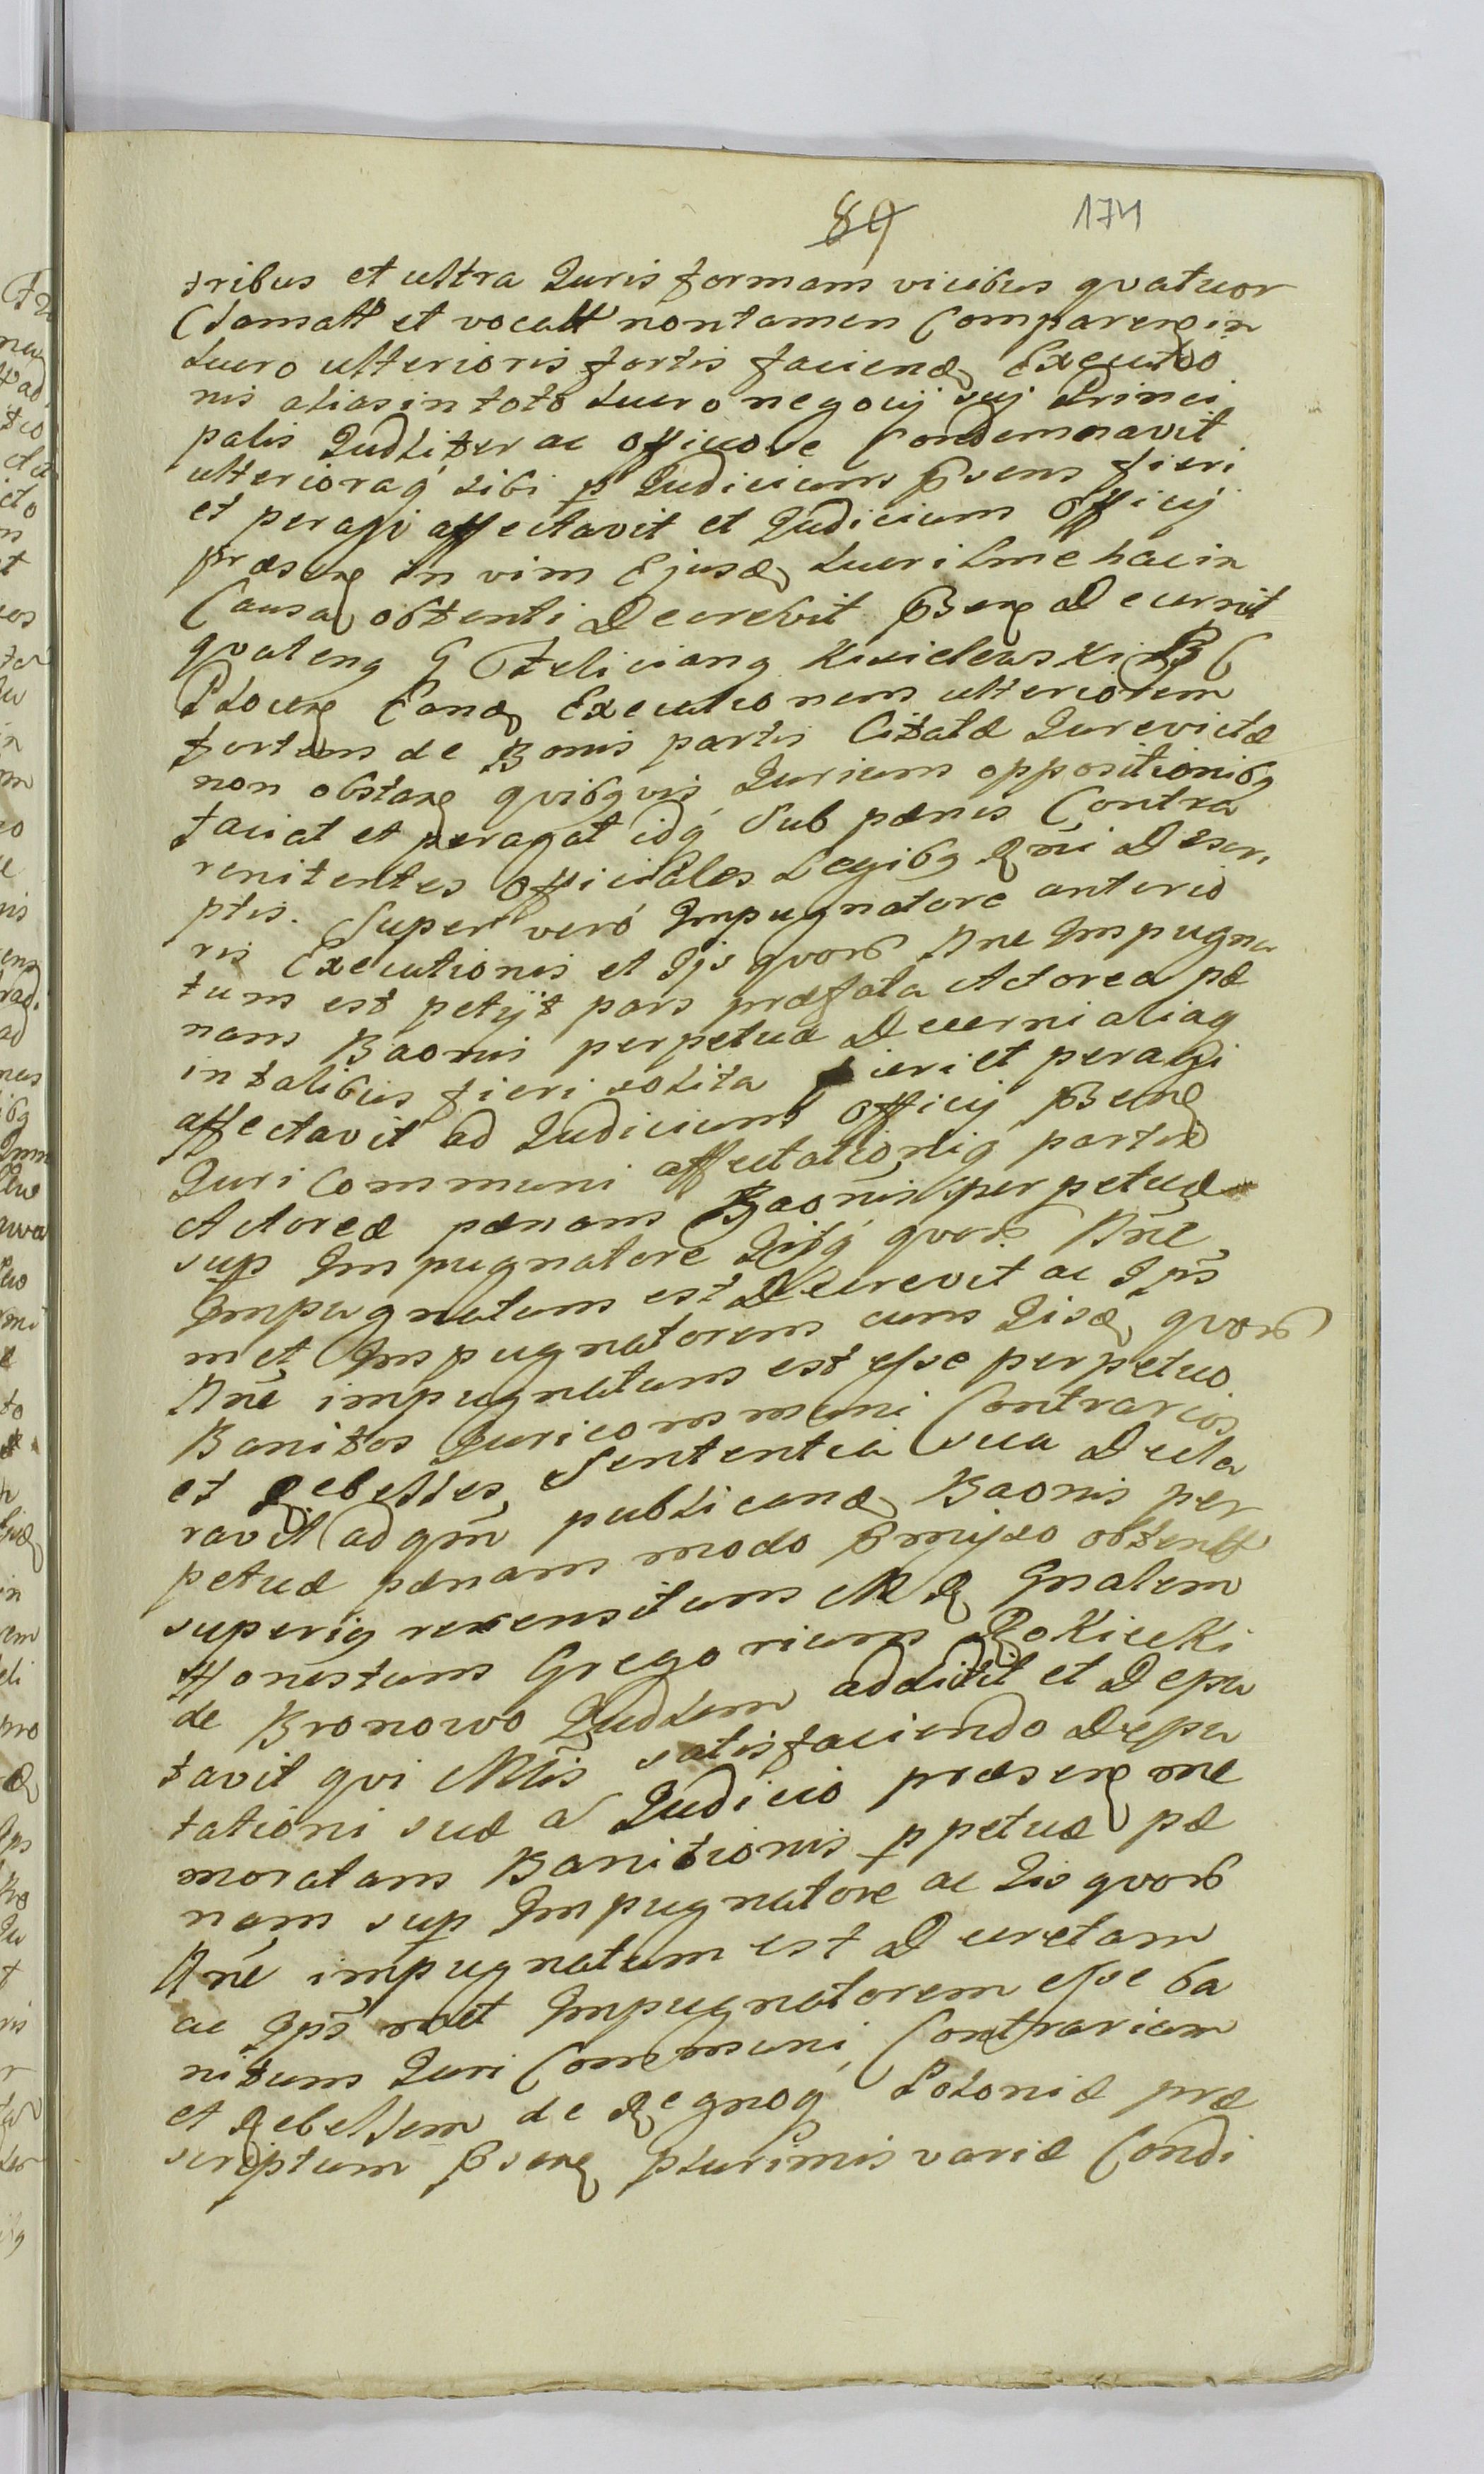 89 174
tribus et ultra Juris formam vicibus quatuor
Clamatt et vocatt non tamen Comparen in
lucro ulterioris fortis faciend Executio
nis alias in toto lucro negocij suj Princi
palis Judliter ac officiose Condemnavit
ulterioraq sibi p Judicium Psens fieri
et peragi affectavit et Judicium Officij
præsens in vim Ejusd lucri hac in
Causa obtenti Decrevit Psens Decernit
quatenq G Felicianq Kisielewski B C
Plocen Eand Executionem ulteriorem
fortem de Bonis partis Citatæ Jurevictæ
non obstan quibqvis Jurium oppositionibq
faciat et peragat idq sub pænis Contra
renitentes officiales Legibq Rni Descri
ptis. Super vero Impugnatore anterio
ris Executionis et Ijs quorb Nne Impugna
tum est petijt pars præfata Actorea pæ
nam Baonis perpetuæ Decerni aliaq
in talibus fieri solita fieri et peragi
affectavit ad Judicium Officij Psens
Juri Communi affectationiq partis
Actoreæ pænam Baonis perpetuæ
sup Impugnatore Ijsq quorb Nne
Impugnatum est Decrevit ac Ips
met Impugnatorem cum Iisd quorb
Nne impugnatum est esse perpetuo
Banitos Juri communi Contrarios
et Rebelles Sententia sua Decla
ravit ad qm publicand Baonis per
petuæ pænam modo Pmisso obtentt
superiq recensitum M R Gnalem
Honestum Gregorium Rokicki
de Bronowo Juddem addidit et Depu
tavit qui Mtis satisfaciendo Depu
tationi suæ a Judicio præsen me
moratam Banitionis ppetuæ pæ
nam sup Impugnatore ac Iis quorb
Nne impugnatum est Decretam
ac Ips met Impugnatorem esse ba
nitum Juri Communi Contrarium
et Rebellem de Regnoq Poloniæ præ
scriptum Psen plurimis variæ Condi